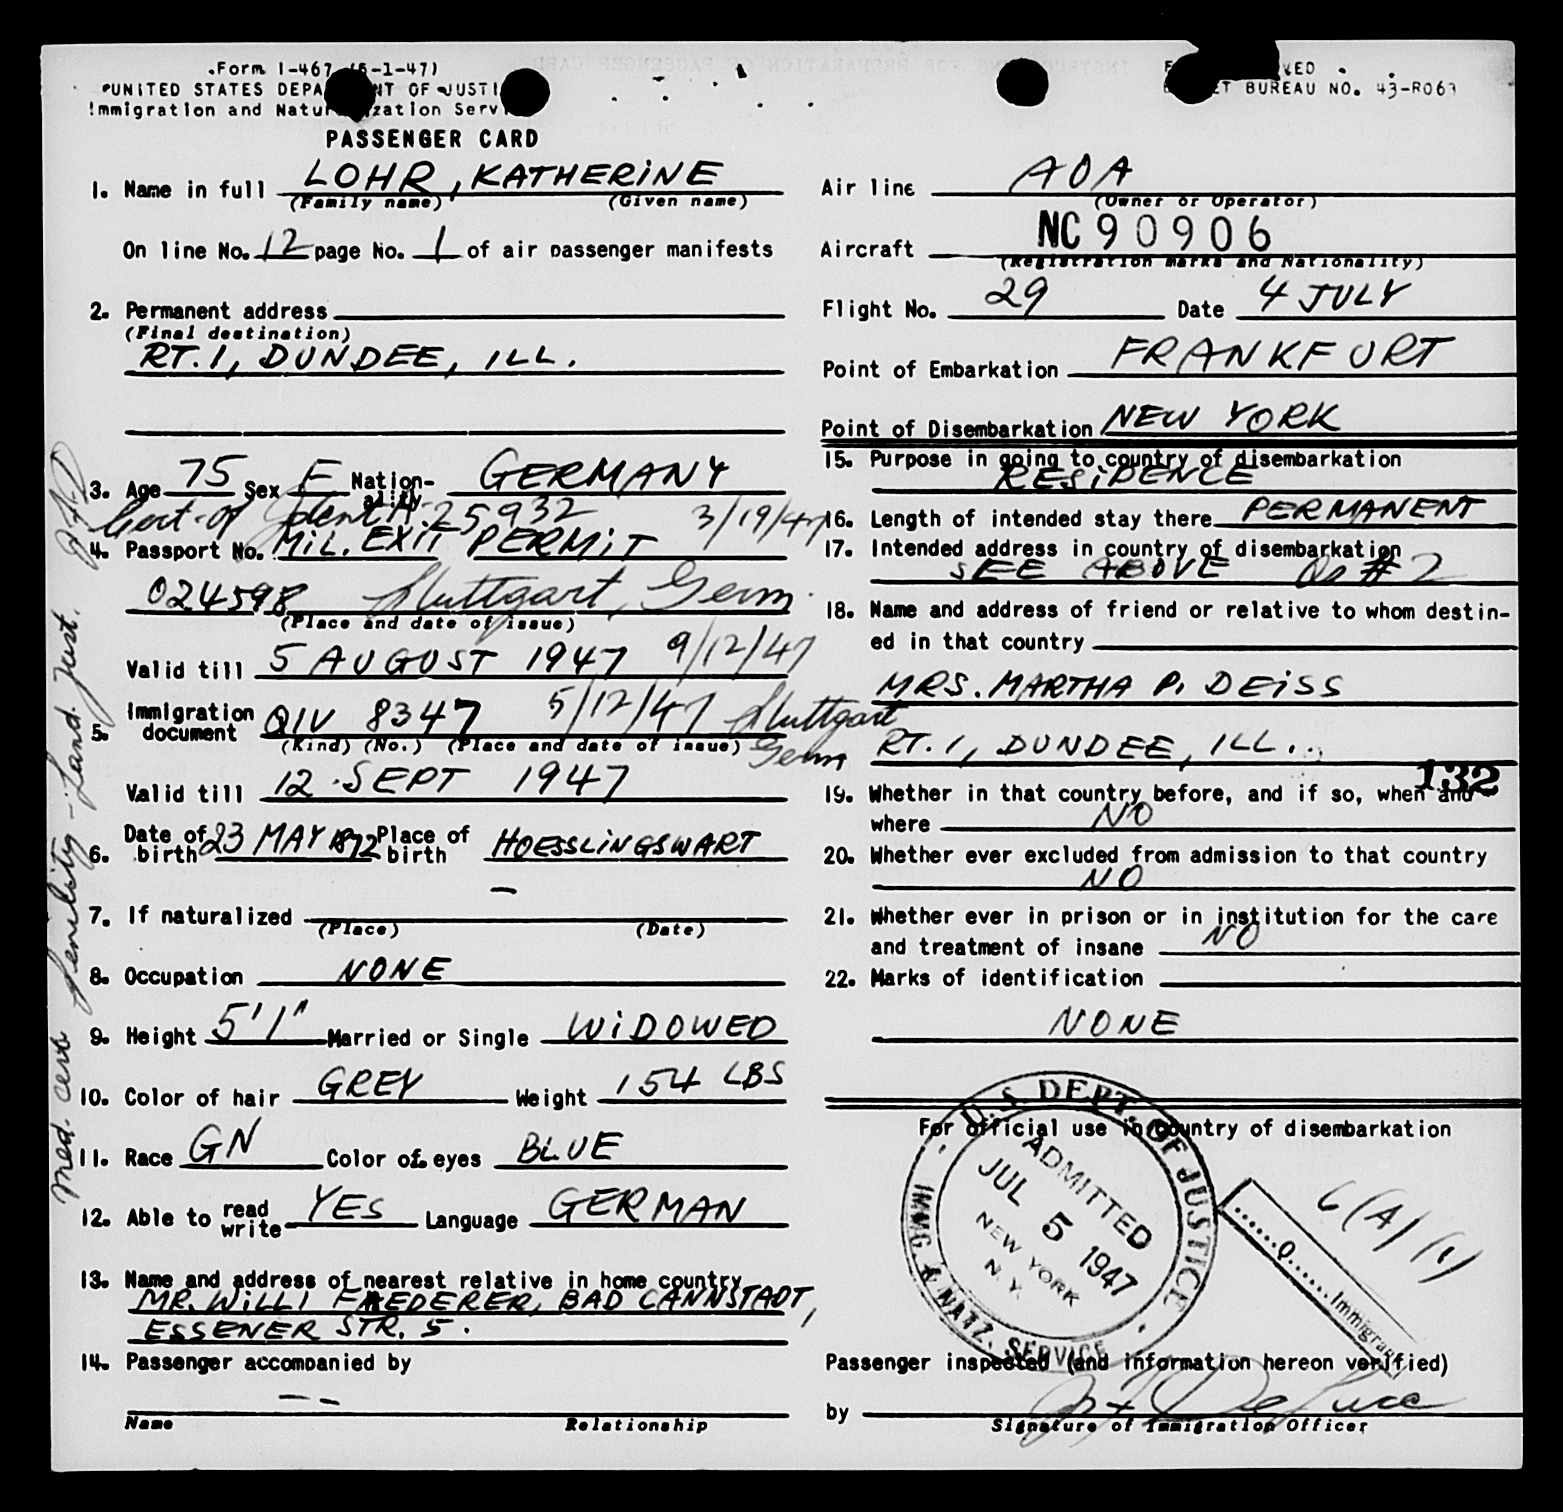 Form I-467 (6-1-47)
UNITED STATES OF
Immigration and
PASSENGER CARD
1. Name in full LOHR, KATHERINE
(Family name) (Given name)
On line No. 12 page No. 1 of air passenger manifests
2. Permanent address
(Final destination)
RT. 1, DUNDEE, ILL.
3. Age 75 Sex F Nationality GERMANY
Cert. of Ident. A-25932 3/19/47
4. Passport No. MIL. EXIT PERMIT
024598 Stuttgart, Germ.
(Place and date of issue)
Valid till 5 AUGUST 1947 9/12/47
5. Immigration document QIV 8347 5/12/47 Stuttgart Germ
(Kind) (No.) (Place and date of issue)
Valid till 12 SEPT 1947
6. Date of birth 23 MAY 1872 Place of birth HOESSLINGSWART
7. If naturalized —
(Place) (Date)
8. Occupation NONE
9. Height 5'1" Married or Single WIDOWED
10. Color of hair GREY Weight 154 LBS
11. Race GN Color of eyes BLUE
12. Able to read write YES Language GERMAN
13. Name and address of nearest relative in home country
MR. WILLI FAEDERER, BAD CANNSTADT,
ESSENER STR. 5.
14. Passenger accompanied by
— —
Name Relationship
Med. cert. Senility - Land. Just.
BUREAU NO. 43-R063
Air line AOA
(Owner or Operator)
Aircraft NC 90906
(Registration marks and Nationality)
Flight No. 29 Date 4 JULY
Point of Embarkation FRANKFURT
Point of Disembarkation NEW YORK
15. Purpose in going to country of disembarkation
RESIDENCE
16. Length of intended stay there PERMANENT
17. Intended address in country of disembarkation
SEE ABOVE No #2
18. Name and address of friend or relative to whom destin-
ed in that country
MRS. MARTHA P. DEISS
RT. 1, DUNDEE, ILL.
132
19. Whether in that country before, and if so, when and
where NO
20. Whether ever excluded from admission to that country
NO
21. Whether ever in prison or in institution for the care
and treatment of insane NO
22. Marks of identification
NONE
For official use in country of disembarkation
U.S. DEPT. OF JUSTICE
ADMITTED
JUL 5 1947
NEW YORK
N.Y.
IMMG. & NATZ. SERVICE
6(A)(1)
......Q......Immigrant
Passenger inspected (and information hereon verified)
by
Signature of Immigration Officer